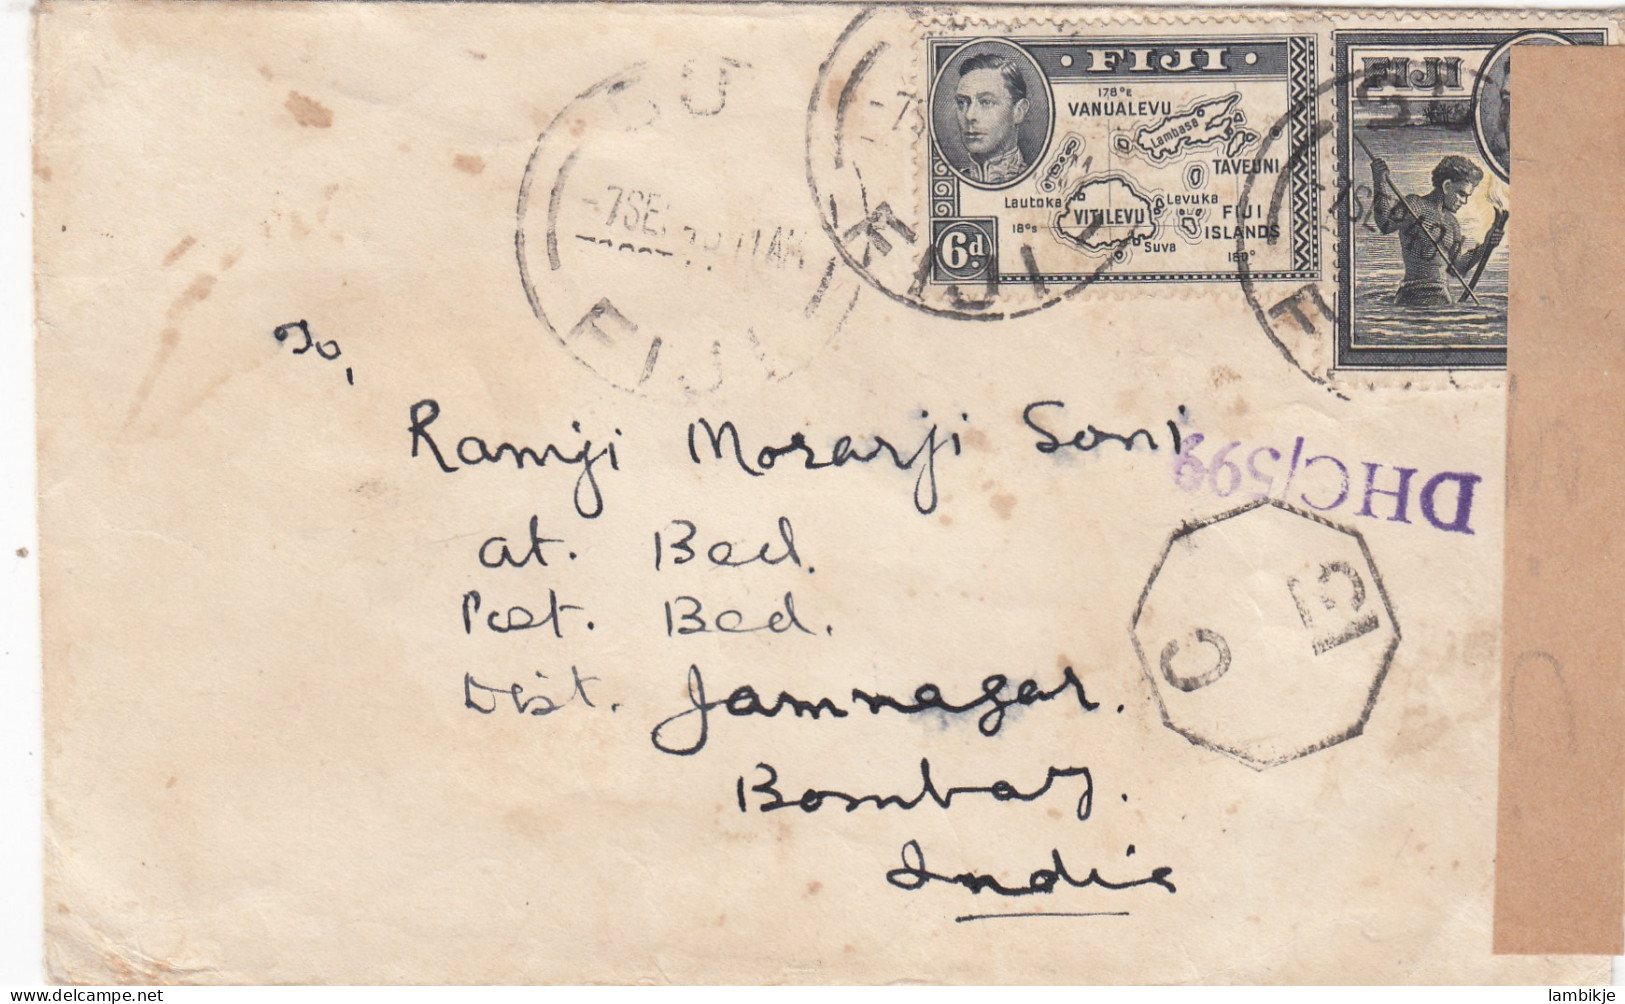 FIJI
178°E
VANUALEVU
Lambasa
TAVEUNI
Lautoka
Levuka
VITILEVU
FIJI
ISLANDS
18°S
Suva
180°
6d
FIJI
FIJI
-7SE
11AM
FIJI
To,
Ramji Morarji Soni
at. Bed.
Post. Bed.
Dist. Jamnagar.
Bombay.
India
DHC/599
C E
lambikje